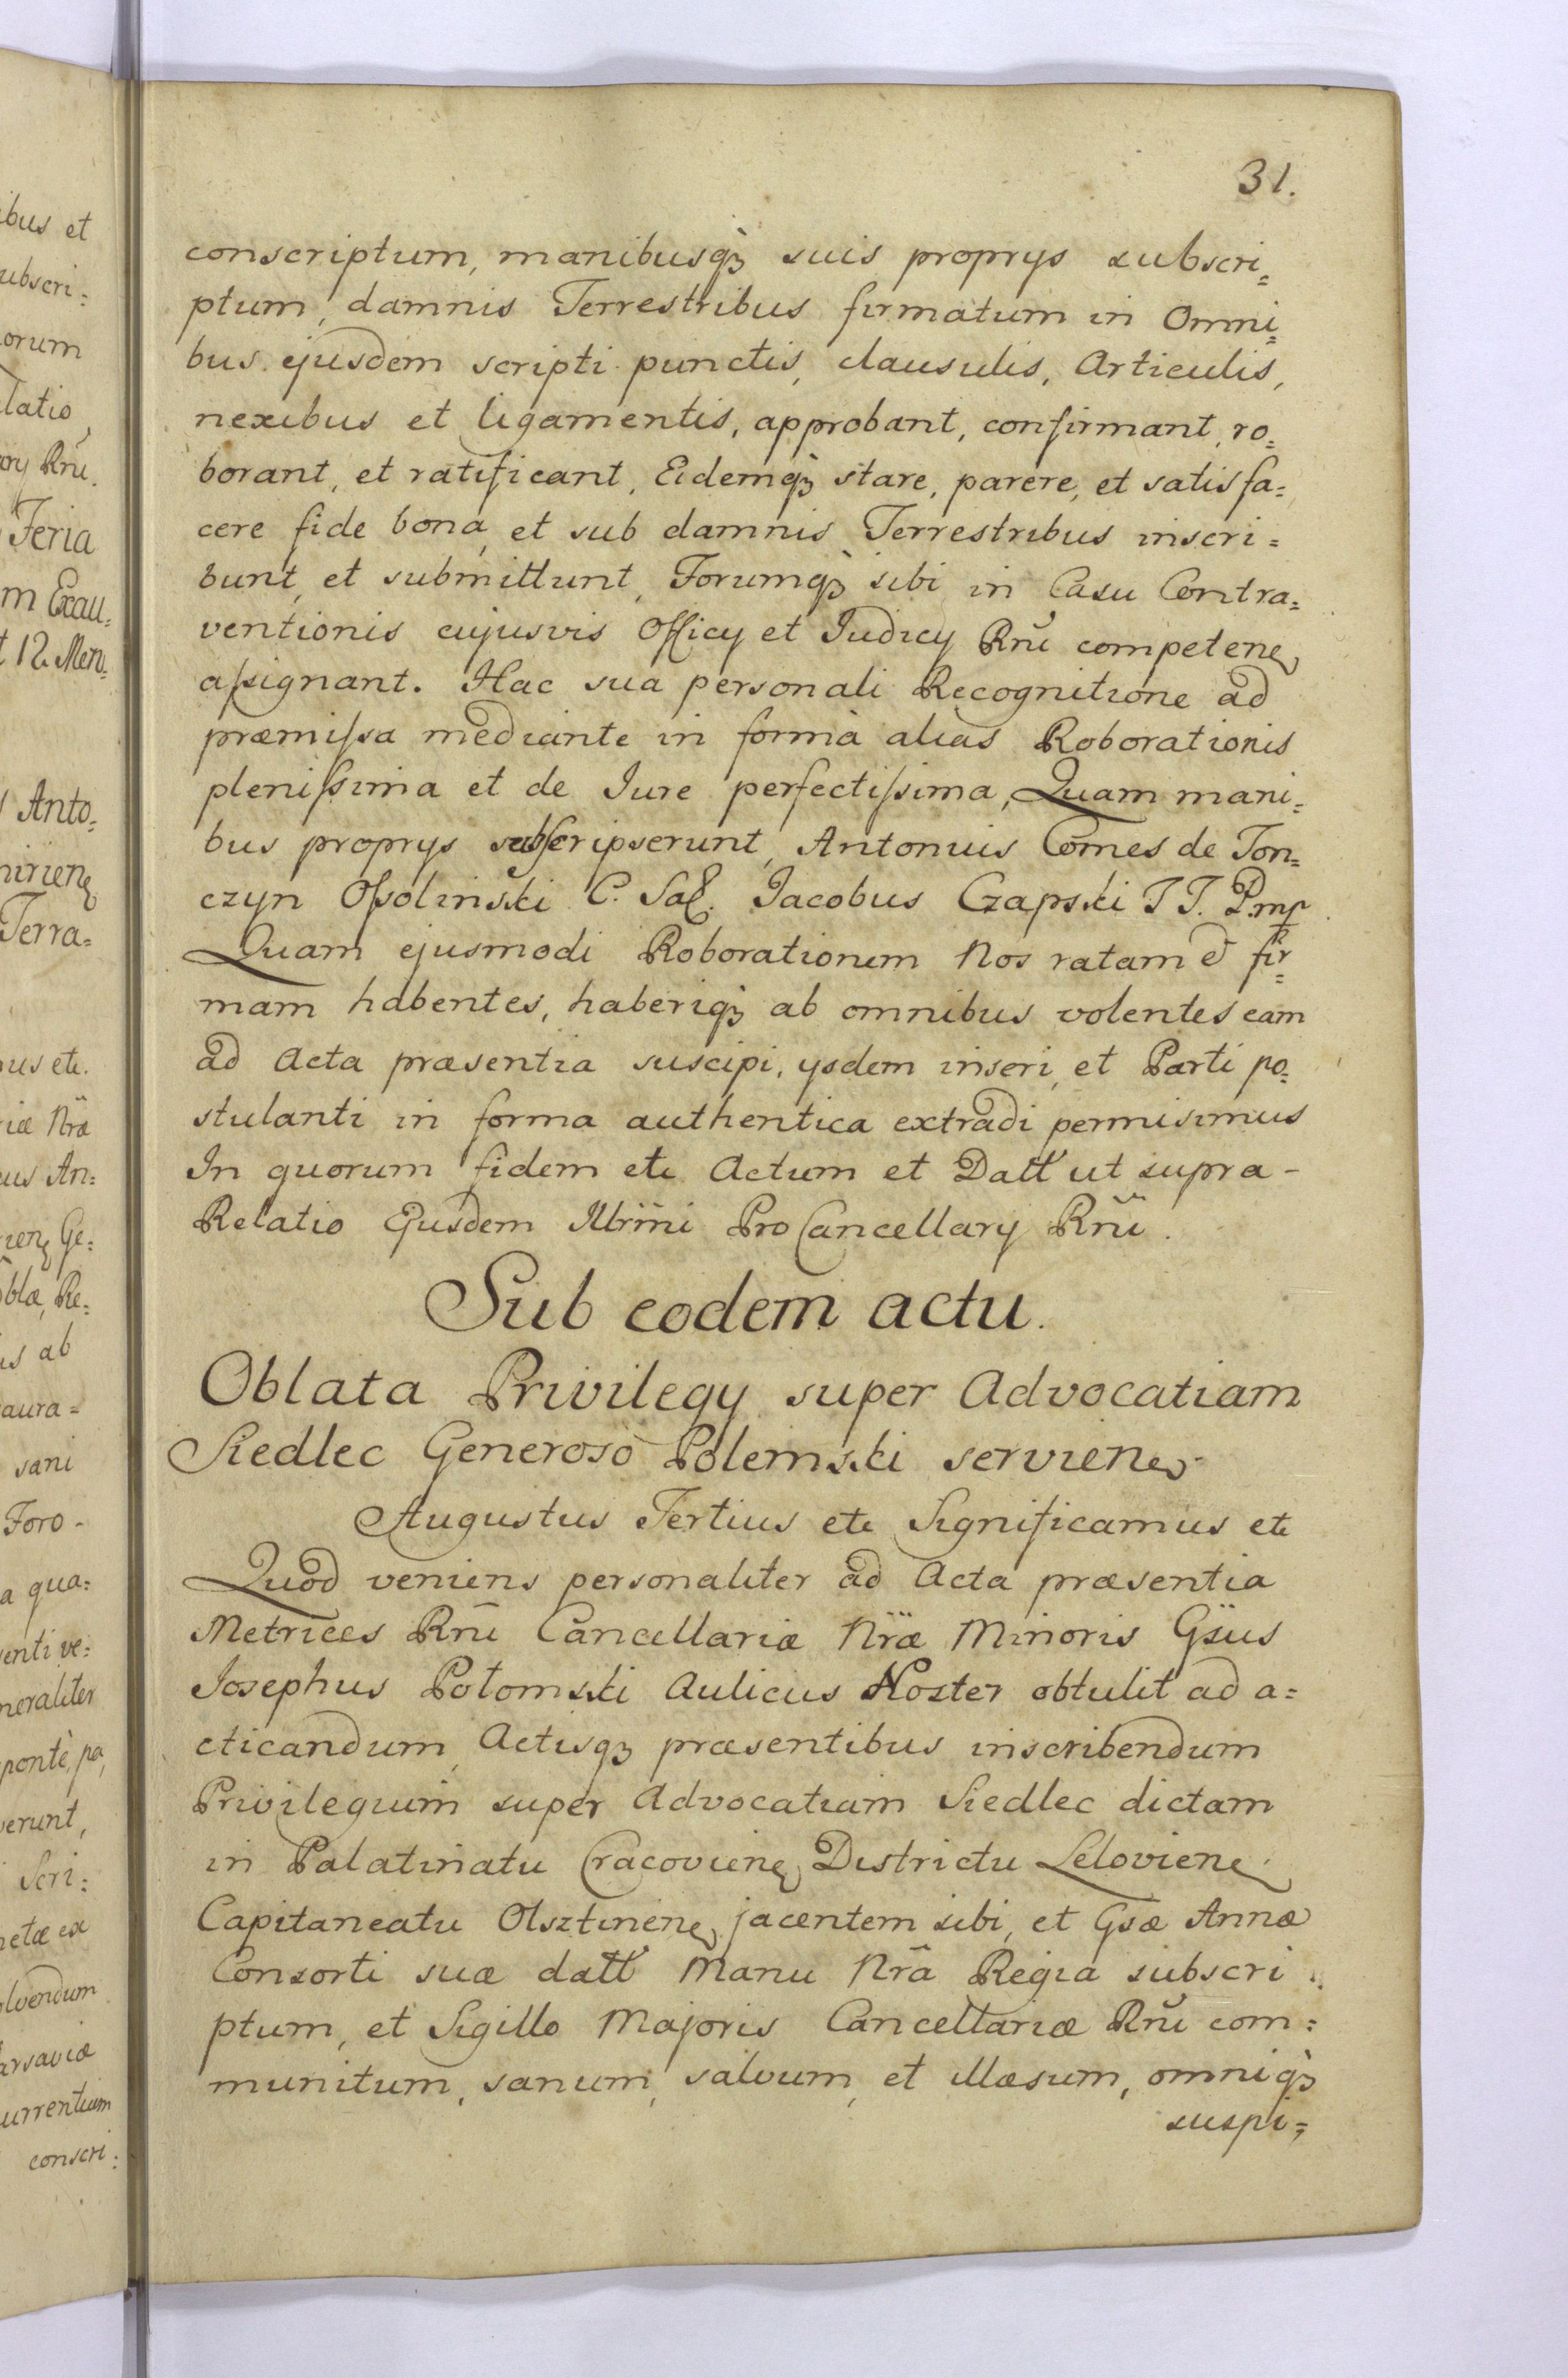 ibus et
ubscri=
orum
latio,
ory Rñi.
Feria
m Exau=
t 12. Men=
Anto=
nirien
Terra=
us etc.
iæ Nræ
us An=
rien Ge=
blæ, Re=
is ab
aura=
sani
Foro -
a qua=
enti ve=
neraliter
ponte, pa,
erunt,
Scri:
netæ ex
lvendum
arsaviæ
urrentium
conscri:
31.
conscriptum, manibusq̃ suis proprys subscri=
ptum, damnis Terrestribus firmatum in Omni=
bus ejusdem scripti punctis, clausulis, Articulis,
nexibus et ligamentis, approbant, confirmant, ro=
borant, et ratificant, Eidemq̃ stare, parere, et satisfa=
cere fide bona, et sub damnis Terrestribus inscri=
bunt, et submittunt, Forumq̃ sibi in Casu Contra=
ventionis cujusvis Officy et Judicy Rñi competen
aſsignant. Hac sua personali Recognitione ad
præmiſsa mediante in forma alias Roborationis
pleniſsima et de Jure perfectiſsima, Quam mani=
bus proprys subscripserunt, Antonius Comes de Ton=
czyn Oſsolinski C. Sał. Jacobus Czapski T T. P. mp
Quam ejusmodi Roborationem Nos ratam & fir=
mam habentes, haberiq̃ ab omnibus volentes eam
ad Acta præsentia suscipi, ysdem inseri, et Parti po=
stulanti in forma authentica extradi permisimus
In quorum fidem etc Actum et Datt ut supra -
Relatio Ejusdem Illrm̃i Pro Cancellary Rñi.
Sub eodem actu.
Oblata Privilegy super Advocatiam
Siedlec Generoso Polemski servien
Augustus Tertius etc Significamus etc
Quod veniens personaliter ad Acta præsentia
Metrices Rñi Cancellariæ Nræ Minoris Gsus
Josephus Połomski Aulicus Noster obtulit ad a=
cticandum, Actisq̃ præsentibus inscribendum
Privilegium super Advocatiam Siedlec dictam
in Palatinatu Cracovien Districtu Lelovien
Capitaneatu Olsztinen jacentem sibi, et Gsæ Annæ
Consorti suæ datt Manu Nrâ Regia subscri=
ptum, et Sigillo Majoris Cancellariæ Rñi com=
munitum, sanum, salvum, et illæsum, omniq̃
suspi=